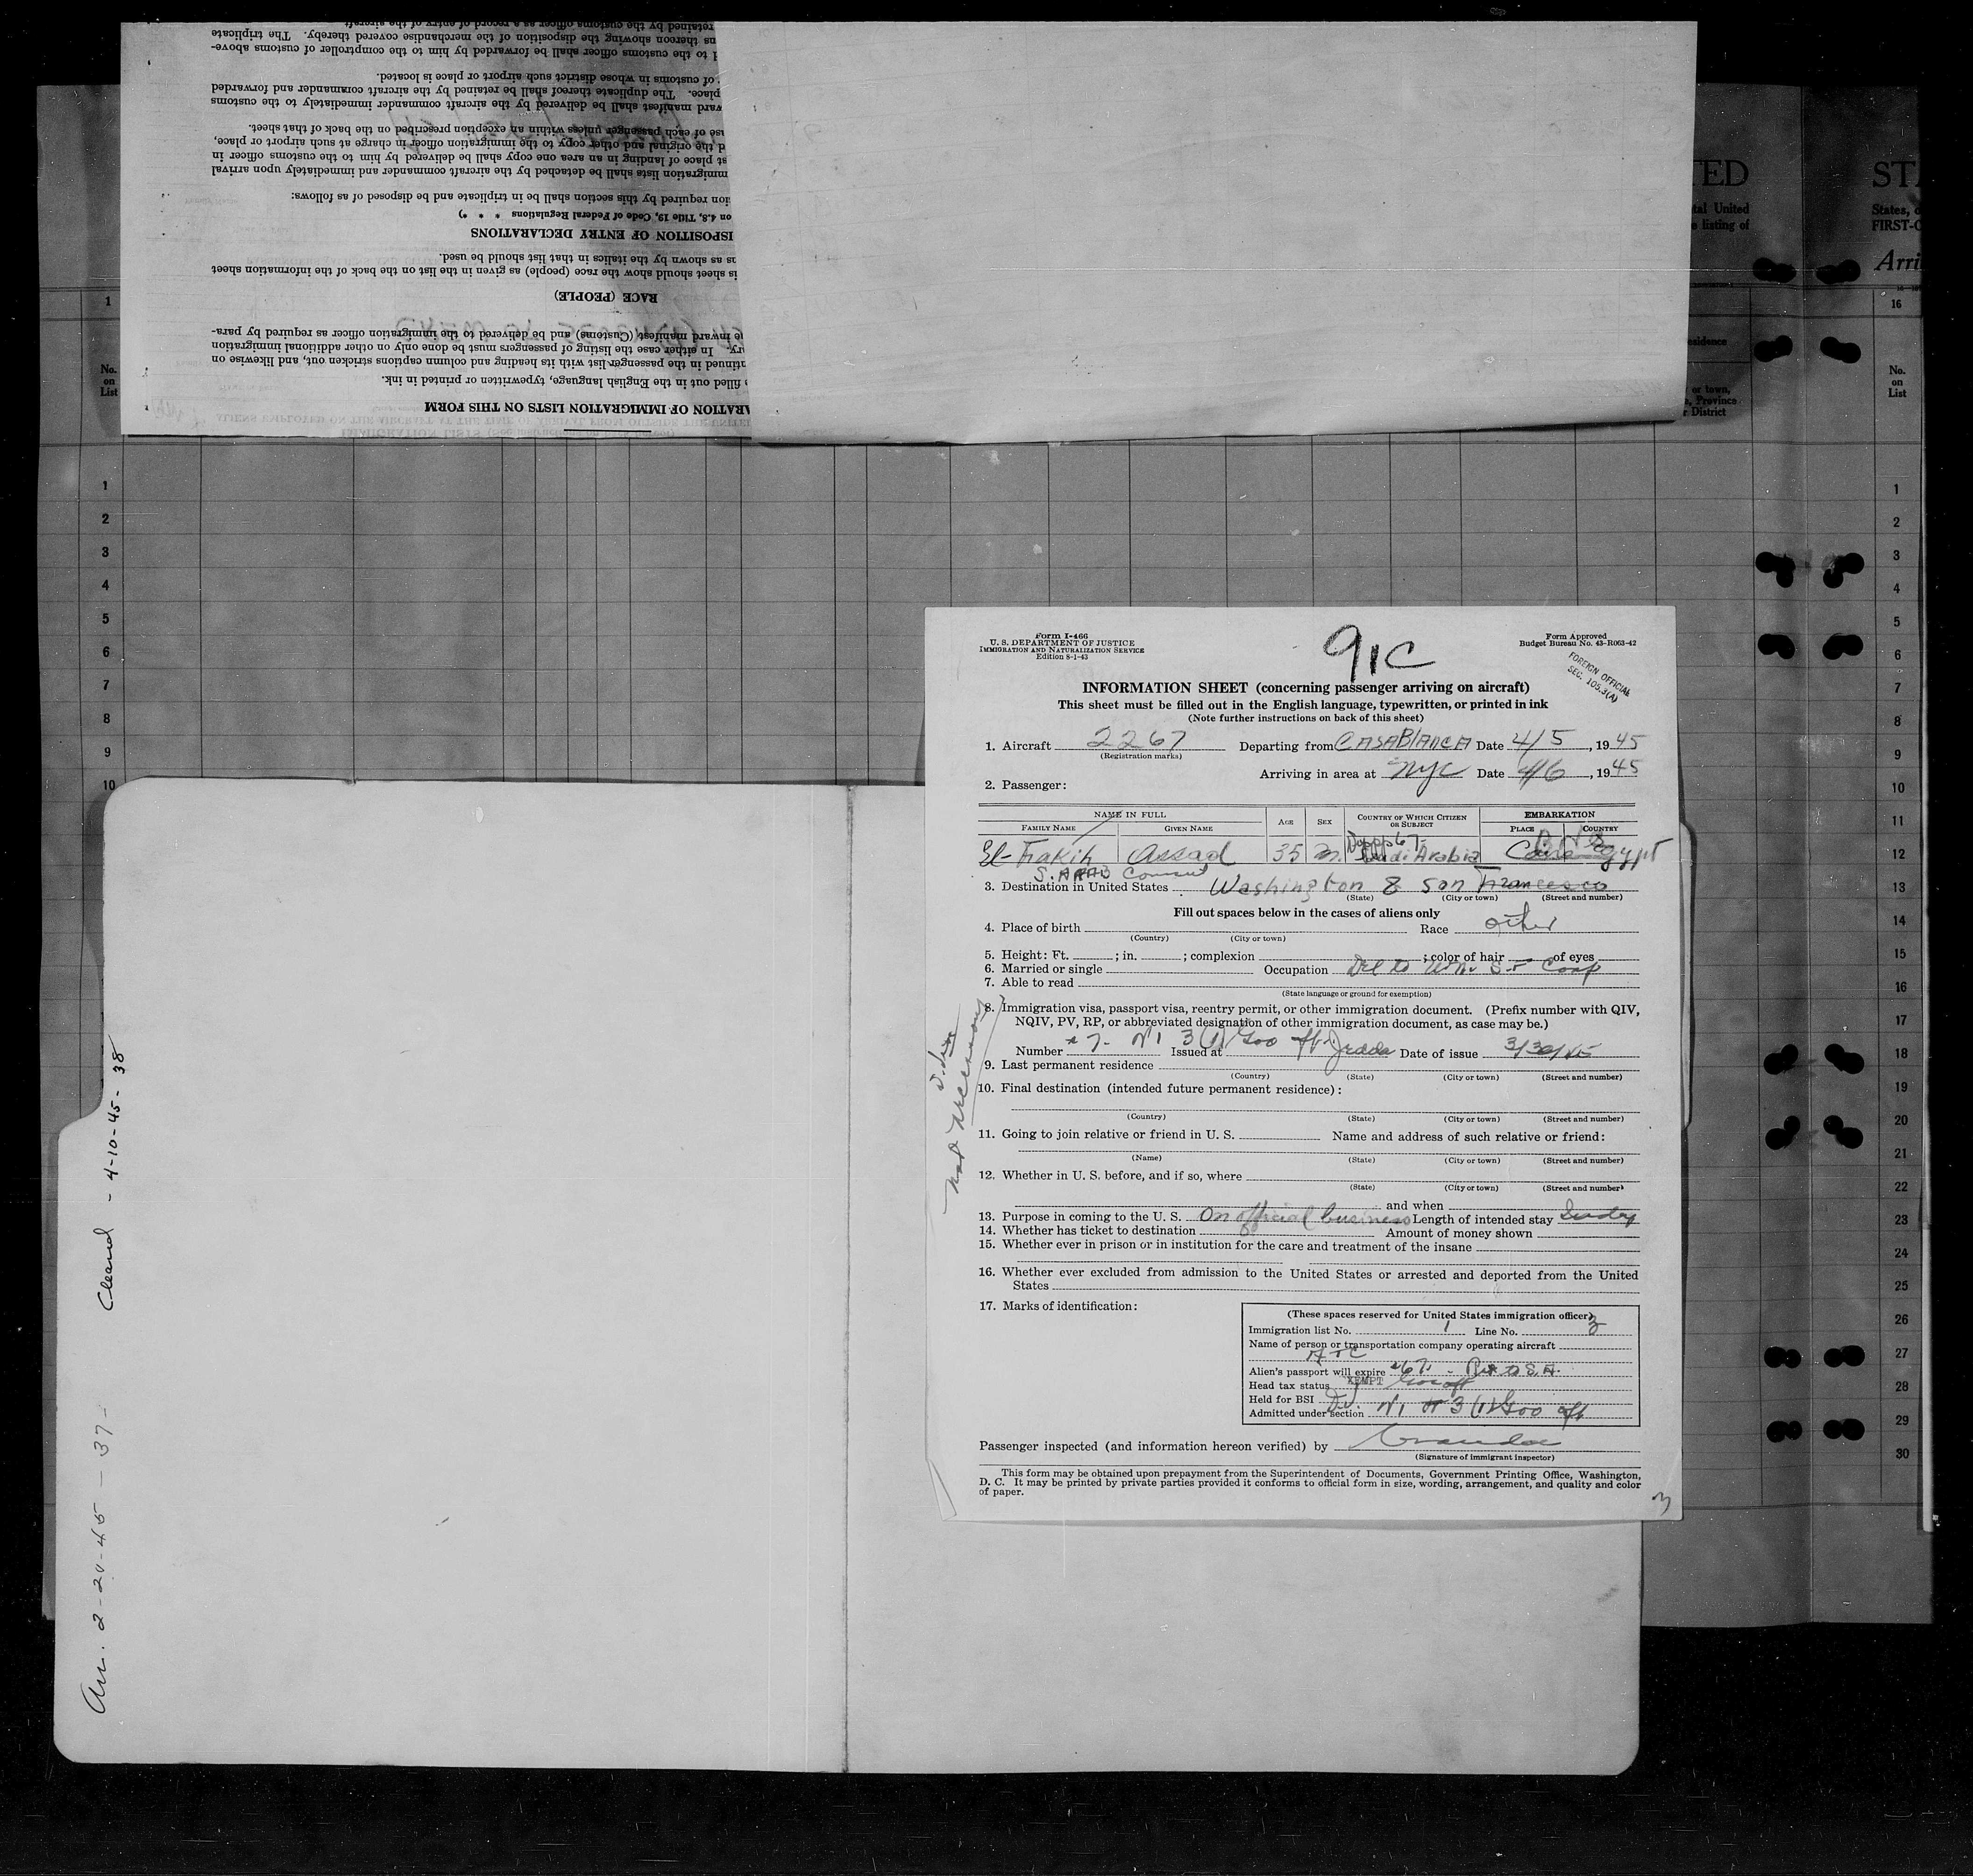 retained by the customs officer as a record of entry of the aircraft.
ns thereon showing the disposition of the merchandise covered thereby. The triplicate
d to the customs officer shall be forwarded by him to the comptroller of customs above-
of customs in whose district such airport or place is located.
place. The duplicate thereof shall be retained by the aircraft commander and forwarded
ward manifest shall be delivered by the aircraft commander immediately to the customs
use of each passenger unless within an exception prescribed on the back of that sheet.
d the original and other copy to the immigration officer in charge at such airport or place,
st place of landing in an area one copy shall be delivered by him to the customs officer in
mmigration lists shall be detached by the aircraft commander and immediately upon arrival
ion required by this section shall be in triplicate and be disposed of as follows:
on 4.8, Title 19, Code of Federal Regulations * * *)
ISPOSITION OF ENTRY DECLARATIONS
as as shown by the italics in that list should be used.
is sheet should show the race (people) as given in the list on the back of the information sheet
RACE (PEOPLE)
he inward manifest (Customs) and be delivered to the immigration officer as required by para-
ry. In either case the listing of passengers must be done only on other additional immigration
tinued in the passenger list with its heading and column captions stricken out, and likewise on
e filled out in the English language, typewritten or printed in ink.
ARATION OF IMMIGRATION LISTS ON THIS FORM
TED
tal United
e listing of
esidence
or town,
e, Province
r District
STA
States, o
FIRST-C
Arri
1
No.
on
List
1
2
3
4
5
6
7
8
9
10
16
No.
on
List
1
2
3
4
5
6
7
8
9
10
11
12
13
14
15
16
17
18
19
20
21
22
23
24
25
26
27
28
29
30
Cleared - 4-10-45- 38
Arr. 2-24-45 - 37-
Form I-466
U. S. DEPARTMENT OF JUSTICE
IMMIGRATION AND NATURALIZATION SERVICE
Edition 8-1-43
91C
Form Approved
Budget Bureau No. 43-R063-42
FOREIGN OFFICIAL
SEC. 105.3(A)
INFORMATION SHEET (concerning passenger arriving on aircraft)
This sheet must be filled out in the English language, typewritten, or printed in ink
(Note further instructions on back of this sheet)
1. Aircraft 2267 Departing from CASABlANCA Date 4/5, 1945
(Registration marks)
Arriving in area at NYC Date 4/6, 1945
2. Passenger:
NAME IN FULL AGE SEX COUNTRY OF WHICH CITIZEN OR SUBJECT EMBARKATION
FAMILY NAME GIVEN NAME PLACE COUNTRY
El-Fakih Assad 35 m. Saudi Arabia Cairo Egypt
S. ARAB Consul
3. Destination in United States Washington & San Francesco
(State) (City or town) (Street and number)
Fill out spaces below in the cases of aliens only
4. Place of birth Race other
(Country) (City or town)
5. Height: Ft. ; in. ; complexion ; color of hair of eyes
6. Married or single Occupation Del to
7. Able to read
(State language or ground for exemption)
8. Immigration visa, passport visa, reentry permit, or other immigration document. (Prefix number with QIV,
NQIV, PV, RP, or abbreviated designation of other immigration document, as case may be.)
Number Issued at Jedda Date of issue 3/30/45
9. Last permanent residence
(Country) (State) (City or town) (Street and number)
10. Final destination (intended future permanent residence):
(Country) (State) (City or town) (Street and number)
11. Going to join relative or friend in U. S. Name and address of such relative or friend:
(Name) (State) (City or town) (Street and number)
12. Whether in U. S. before, and if so, where
(State) (City or town) (Street and number)
and when
13. Purpose in coming to the U. S. On official business Length of intended stay
14. Whether has ticket to destination Amount of money shown
15. Whether ever in prison or in institution for the care and treatment of the insane
16. Whether ever excluded from admission to the United States or arrested and deported from the United
States
17. Marks of identification:
(These spaces reserved for United States immigration officer)
Immigration list No. 1 Line No. 3
Name of person or transportation company operating aircraft
ATC
Alien's passport will expire
Head tax status
Held for BSI
Admitted under section 3(1)
Passenger inspected (and information hereon verified) by
(Signature of immigrant inspector)
This form may be obtained upon prepayment from the Superintendent of Documents, Government Printing Office, Washington,
D. C. It may be printed by private parties provided it conforms to official form in size, wording, arrangement, and quality and color
of paper.
not necessary
3